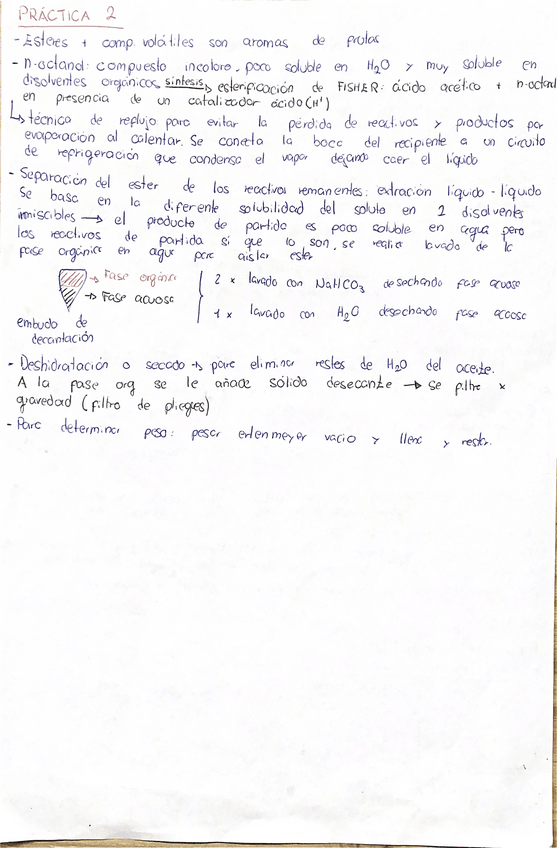 PRÁCTICA 2
- Esteres + comp. volátiles son aromas de frutas
- n-octanol: compuesto incoloro, poco soluble en H₂O y muy soluble en
disolventes orgánicos, síntesis → esterificación de FISHER: ácido acético + n-octanol
en presencia de un catalizador ácido (H⁺)
↳ técnica de reflujo para evitar la pérdida de reactivos y productos por
evaporación al calentar. Se conecta la boca del recipiente a un circuito
de refrigeración que condensa el vapor dejando caer el líquido
- Separación del ester de los reactivos remanentes: extración líquido-líquido
Se basa en la diferente solubilidad del soluto en 2 disolventes
inmiscibles → el producto de partida es poco soluble en agua pero
los reactivos de partida si que lo son, se realiza lavado de la
fase orgánica en agua para aislar ester
→ Fase orgánica
→ Fase acuosa
embudo de
decantación
2 x lavado con NaHCO₃ desechando fase acuosa
1 x lavado con H₂O desechando fase acuosa
- Deshidratación o secado → para eliminar restos de H₂O del aceite.
A la fase org se le añade sólido desecante → se filtra x
gravedad (filtro de pliegues)
- Para determinar peso: pesar erlenmeyer vacio y lleno y restar.